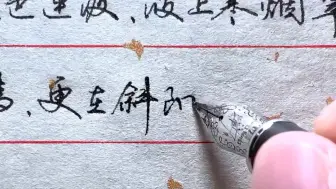 连波，波上寒烟
、更在斜阳